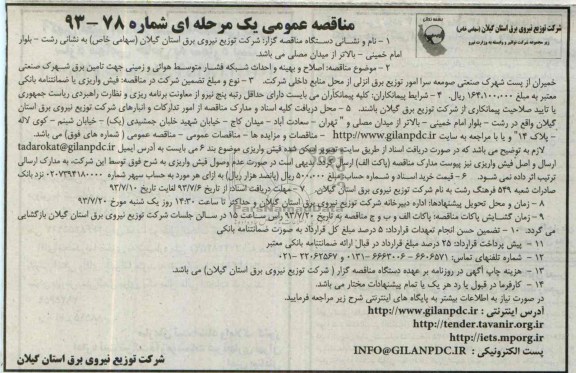 شرکت توزیع نیروی برق استان گیلان (سهامی خاص)
زیر مجموعه شرکت توانیر و وابسته به وزارت نیرو
مناقصه عمومی یک مرحله ای شماره ۷۸-۹۳
۱ – نام و نشانی دستگاه مناقصه گزار: شرکت توزیع نیروی برق استان گیلان (سهامی خاص) به نشانی رشت - بلوار
امام خمینی - بالاتر از میدان مصلی می باشد.
۲ – موضوع مناقصه: اصلاح و بهینه و احداث شبکه فشار متوسط هوائی و زمینی جهت تامین برق شهرک صنعتی
خمیران از پست شهرک صنعتی صومعه سرا امور توزیع برق انزلی از محل منابع داخلی شرکت. ۳ – نوع و مبلغ تضمین شرکت در مناقصه: فیش واریزی یا ضمانتنامه بانکی
معتبر به مبلغ ۱۶۴،۱۰۰،۰۰۰ ریال. ۴ – شرایط پیمانکاران: کلیه پیمانکاران می بایست دارای حداقل رتبه پنج نیرو از معاونت برنامه ریزی و نظارت راهبردی ریاست جمهوری
با تایید صلاحیت پیمانکاری از شرکت توزیع برق گیلان باشند. ۵ – محل دریافت کلیه اسناد و مدارک مناقصه از امور تدارکات و انبارهای شرکت توزیع نیروی برق استان
گیلان واقع در رشت - بلوار امام خمینی - بالاتر از میدان مصلی و " تهران - سعادت آباد - میدان کاج - خیابان شهید خلبان جمشیدی (یک) - خیابان شبنم - کوی لاله
- پلاک ۱۴" و یا با مراجعه به سایت http://www.gilanpdc.ir - مناقصات و مزایده ها - مناقصات عمومی - مناقصه عمومی ( شماره های فوق) می باشد.
لازم به توضیح می باشد که در صورت دریافت اسناد از طریق سایت، تصویر اسکن شده فیش واریزی موضوع بند ۶ می بایست به آدرس ایمیل tadarokat@gilanpdc.ir
ارسال و اصل فیش واریزی نیز پیوست مدارک مناقصه (پاکت الف) ارسال گردد. بدیهی است در صورت عدم وصول فیش واریزی به شرح فوق توسط این شرکت، به مدارک ارسالی
ترتیب اثر داده نمی شود. ۶ – قیمت خرید اسناد و شماره حساب: مبلغ ۵۰۰،۰۰۰ ریال (پانصد هزار ریال) به ازای هر مورد به حساب سپهر شماره ۰۲۰۷۳۹۴۱۸۰۰۰۰ نزد بانک
صادرات شعبه ۵۴۹ فرهنگ رشت به نام شرکت توزیع نیروی برق استان گیلان. ۷ – مهلت دریافت اسناد از تاریخ ۹۳/۷/۶ لغایت تاریخ ۹۳/۷/۱۰
۸ – زمان و محل تحویل پیشنهادها: اداره دبیرخانه شرکت توزیع نیروی برق استان گیلان و حداکثر تا ساعت ۱۴:۳۰ روز یک شنبه مورخ ۹۳/۷/۲۰
۹ – زمان گشایش پاکات مناقصه: پاکات الف و ب و ج مناقصه به تاریخ ۹۳/۷/۲۰ راس ساعت ۱۵ در سالن جلسات شرکت توزیع نیروی برق استان گیلان بازگشایی
می گردد. ۱۰ – تضمین حسن انجام تعهدات قرارداد: ۵ درصد مبلغ کل قرارداد به صورت ضمانتنامه بانکی
۱۱ – پیش پرداخت قرارداد: ۲۵ درصد مبلغ قرارداد در قبال ارائه ضمانتنامه بانکی معتبر
۱۲ – شماره تلفنهای تماس: ۶۶۰۶۵۷۱ - ۶۶۶۳۰۰۶ - ۰۱۳۱ و ۲۲۰۶۲۵۶۷ - ۰۲۱
۱۳ – هزینه چاپ آگهی در روزنامه بر عهده دستگاه مناقصه گزار ( شرکت توزیع نیروی برق استان گیلان) می باشد.
۱۴ – کارفرما در قبول یا رد هر یک یا تمام پیشنهادات مختار می باشد.
در صورت نیاز به اطلاعات بیشتر به پایگاه های اینترنتی شرح زیر مراجعه فرمایید.
آدرس اینترنتی : http://www.gilanpdc.ir
http://tender.tavanir.org.ir
http://iets.mporg.ir
پست الکترونیکی : INFO@GILANPDC.IR
شرکت توزیع نیروی برق استان گیلان